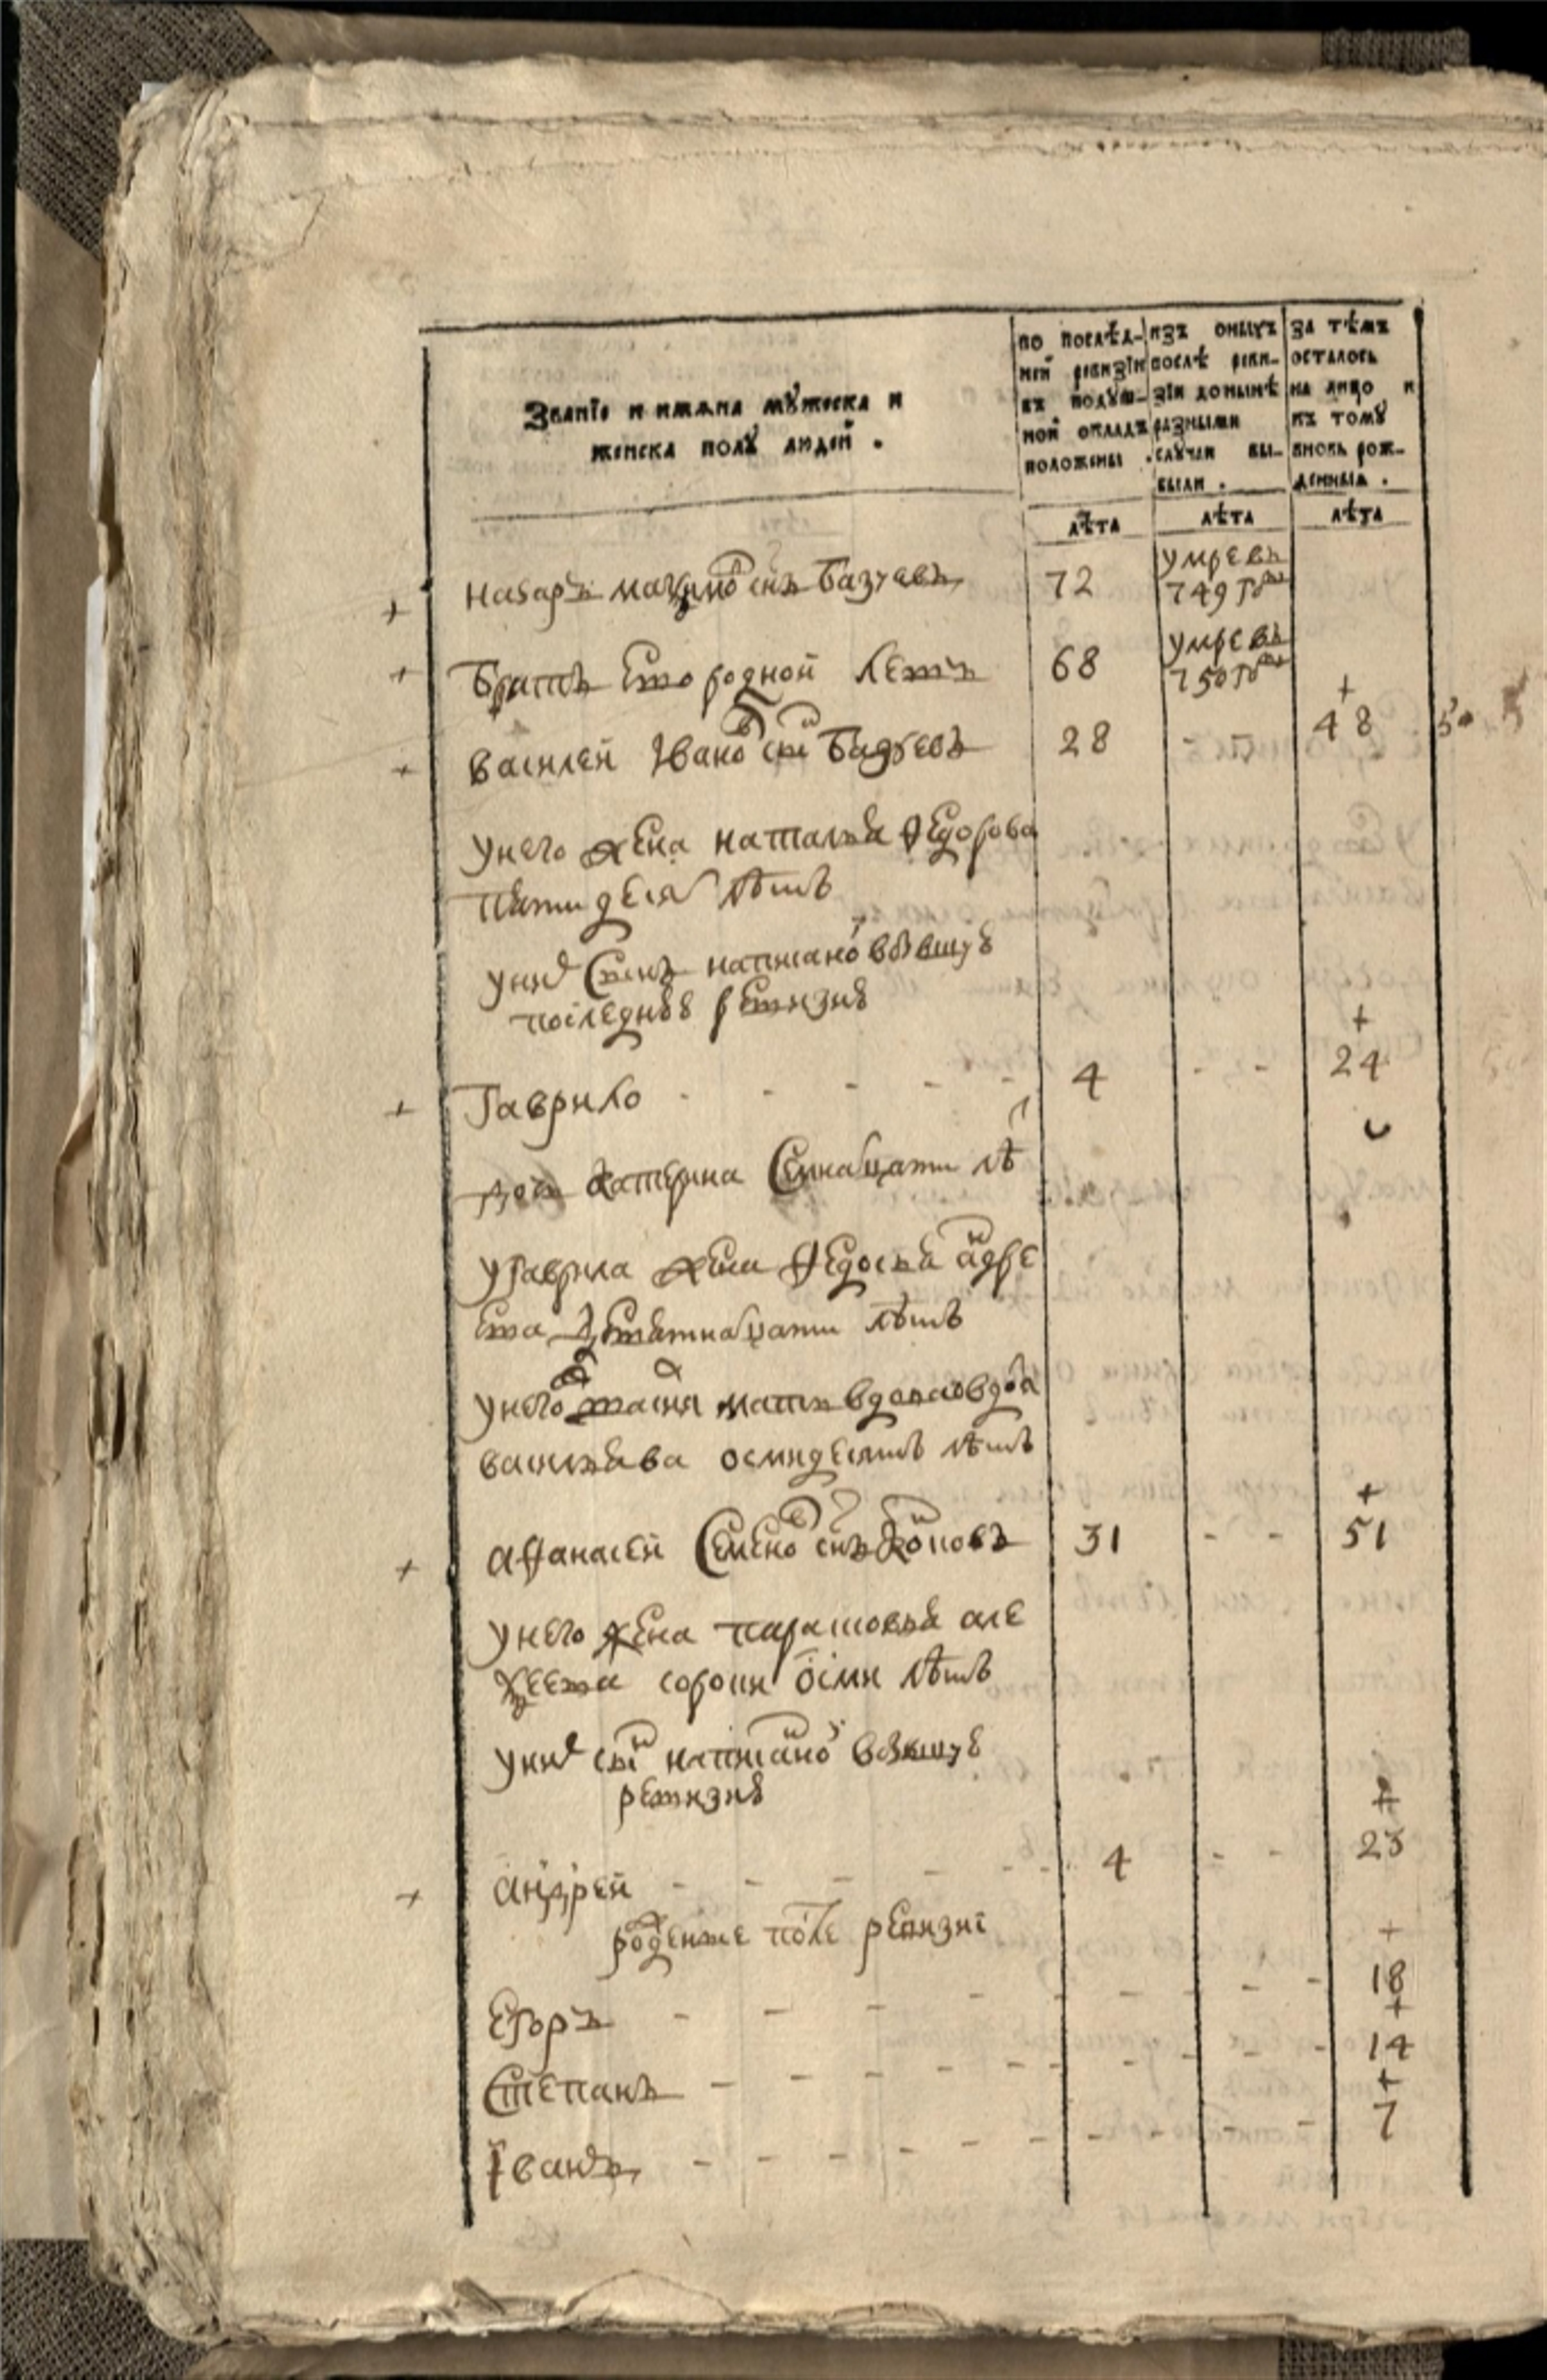 Званїе и имѧна мꙋжеска и
женска полꙋ людей .
по послѣд-
ней ревизїи
въ подꙋш-
ной окладъ
положены .
изъ оныхъ
послѣ реви-
зїи донынѣ
разными
слꙋчаи вы-
были .
за тѣмъ
осталось
на лицо и
къ томꙋ
вновь рож-
денныѧ .
лѣта лѣта лѣта
назаръ снъ 72 умре въ
749 году
братъ ево родной 68 умре въ
750 году
+
василей Iвано снъ 28 - - 48 50
у него жена наталья федорова
пятидеся лѣтъ
у ни снъ написано в бывшую
последнюю ревизию
+
Гаврило - - - - - 4 - - 24
дочь катерина семнацати лѣ
у Гаврила жена федосья анdре
ева девятнацати лѣтъ
у него мать вдова
васильева осмидесятъ лѣтъ
+
афанасей семено снъ 31 - - 51
у него жена парасковья але
ѯеева сорока осми лѣтъ
у ни снъ написано в бывшую
ревизию
+
андрей - - - - - 4 - - 23
рожденые после ревизиї
+
Егоръ - - - - - - - - 18
+
Степанъ - - - - - - - - 14
+
Iванъ - - - - - - - - 7